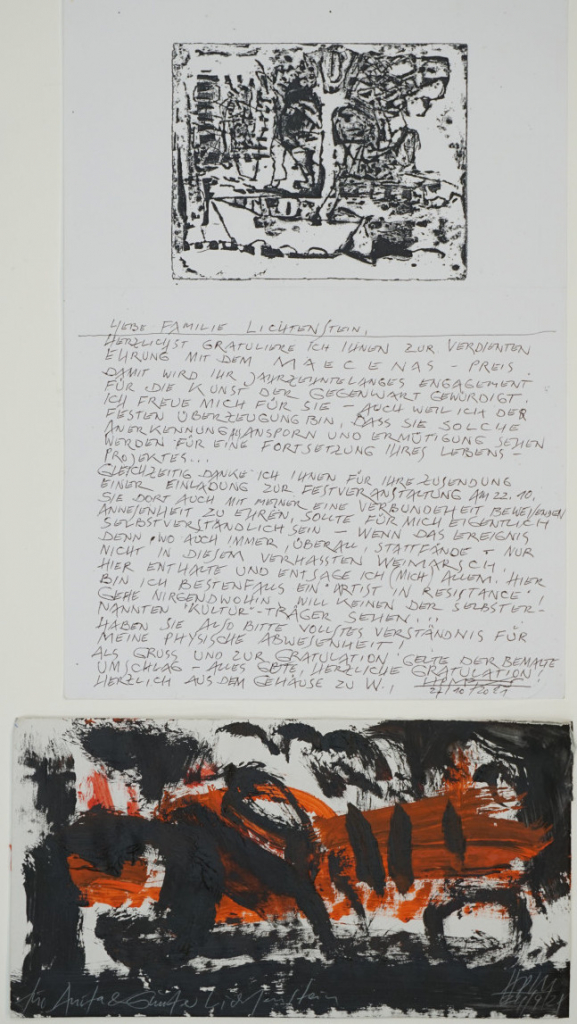 LIEBE FAMILIE LICHTENSTEIN,
HERZLICHST GRATULIERE ICH IHNEN ZUR VERDIENTEN
EHRUNG MIT DEM MAECENAS-PREIS.
DAMIT WIRD IHR JAHRZEHNTELANGES ENGAGEMENT
FÜR DIE KUNST DER GEGENWART GEWÜRDIGT.
ICH FREUE MICH FÜR SIE – AUCH WEIL ICH DER
FESTEN ÜBERZEUGUNG BIN, DASS SIE SOLCHE
ANERKENNUNG ANSPORN UND ERMÜTIGUNG SEHEN
WERDEN FÜR EINE FORTSETZUNG IHRES LEBENS-
PROJEKTES...
GLEICHZEITIG DANKE ICH IHNEN FÜR IHRE ZUSENDUNG
EINER EINLADUNG ZUR FESTVERANSTALTUNG AM 22.10.
SIE DORT AUCH MIT MEINER EINE VERBUNDEHEIT BEWEISENDEN
ANWESENHEIT ZU EHREN, SOLLTE FÜR MICH EIGENTLICH
SELBSTVERSTÄNDLICH SEIN – WENN DAS EREIGNIS
DENN, WO AUCH IMMER, ÜBERALL, STATTFÄNDE – NUR
NICHT IN DIESEM VERHASSTEN WEIMARSCH.
HIER ENTHALTE UND ENTSAGE ICH (MICH) ALLEM. HIER
BIN ICH BESTENFALLS EIN "ARTIST IN RESISTANCE"!
GEHE NIRGENDWOHIN, WILL KEINEN DER SELBSTER-
NANNTEN "KULTUR"-TRÄGER SEHEN...
HABEN SIE ALSO BITTE VOLLSTES VERSTÄNDNIS FÜR
MEINE PHYSISCHE ABWESENHEIT!
ALS GRUSS UND ZUR GRATULATION GELTE DER BEMALTE
UMSCHLAG – ALLES GUTE, HERZLICHE GRATULATION!
HERZLICH AUS DEM GEHÄUSE ZU W.!
27/10/2021
Anita & Günter Lichtenstein